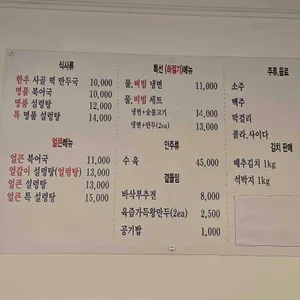 식사류
한우 사골 떡 만두국 10,000
명품 북어국 10,000
명품 설렁탕 12,000
특 명품 설렁탕 14,000
얼큰메뉴
얼큰 북어국 11,000
얼갈이 설렁탕(얼렁탕) 13,000
얼큰 설렁탕 13,000
얼큰 특 설렁탕 15,000
특선 (하절기)메뉴
물,비빔 냉면 11,000
물,비빔 세트
냉면+숯불고기 14,000
냉면+만두(2ea) 13,000
안주류
수 육 45,000
곁들임
바삭부추전 8,000
육즙가득왕만두(2ea) 2,500
공기밥 1,000
주류,음료
소주
맥주
막걸리
콜라,사이다
김치 판매
배추김치 1kg
석박지 1kg